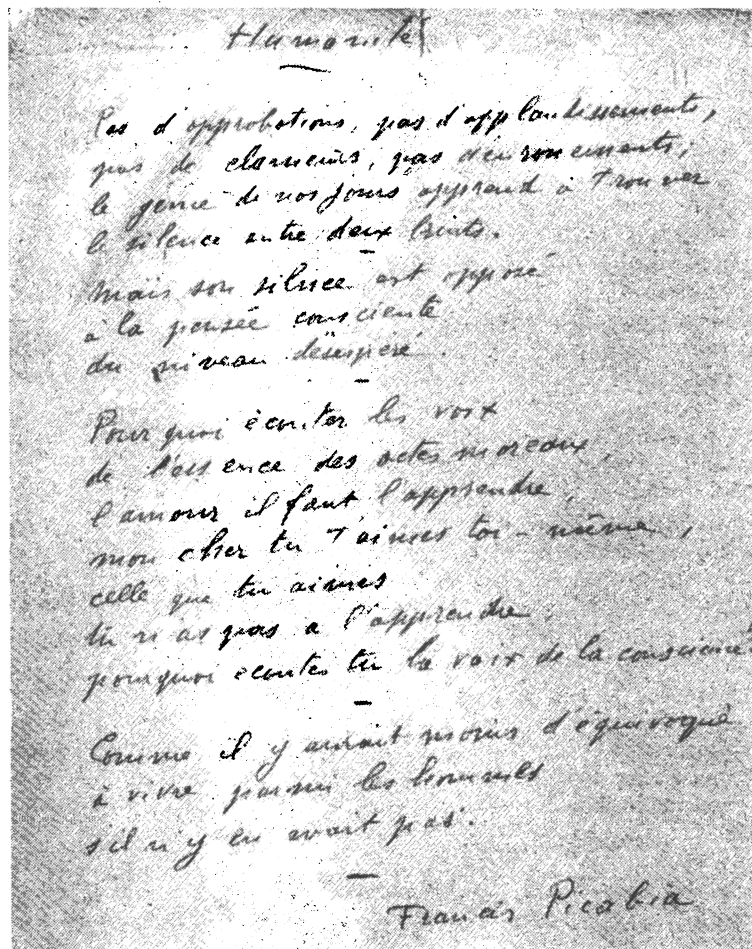 Humanité
Pas d'approbations, pas d'applaudissements,
pas de clameurs, pas d'enrouements,
le génie de nos jours apprend à trouver
le silence entre deux bruits.
mais son silence est opposé
à la pensée consciente
du niveau désespéré.
Pourquoi écouter les voix
de l'essence des actes moreaux,
l'amour il faut l'apprendre,
mon cher tu t'aimes toi-même,
celle que tu aimes
tu n'as pas a l'apprendre.
pourquoi ecoutes tu la voix de la conscience
Comme il y aurait moins d'équivoque
à vivre parmi les hommes
s'il n'y en avait pas.
Francis Picabia